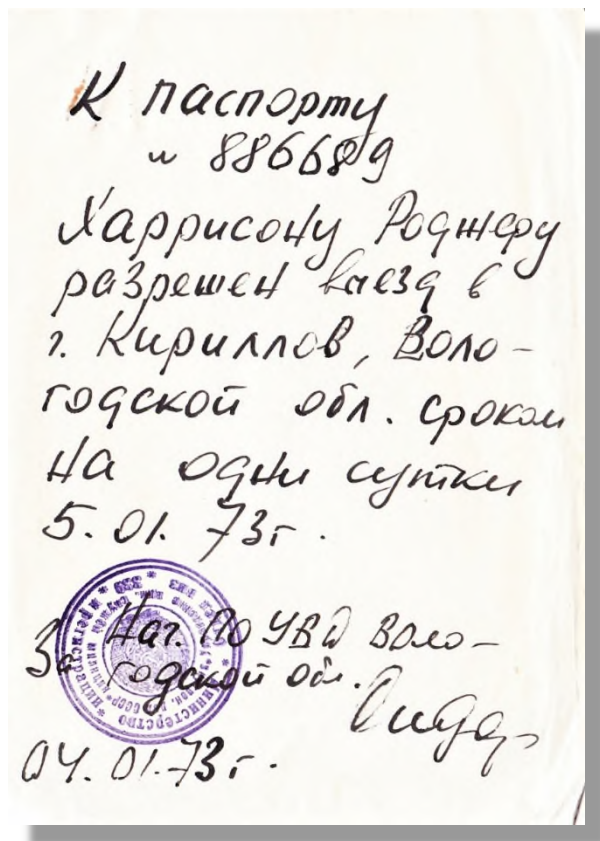 К паспорту
н 886689
Харрисону Роджеру
разрешен въезд в
г. Кириллов, Воло-
годской обл. сроком
на одни сутки
5. 01. 73г.
За Нач. ПО УВД Воло-
годской обл.
04. 01. 73г.